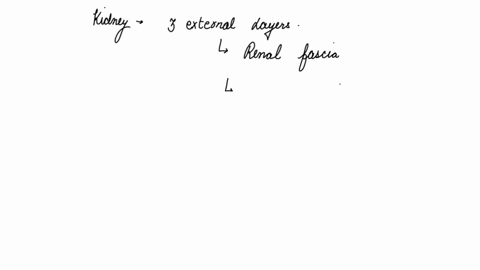 Kidney → 3 external layers.
↳ Renal fascia
↳